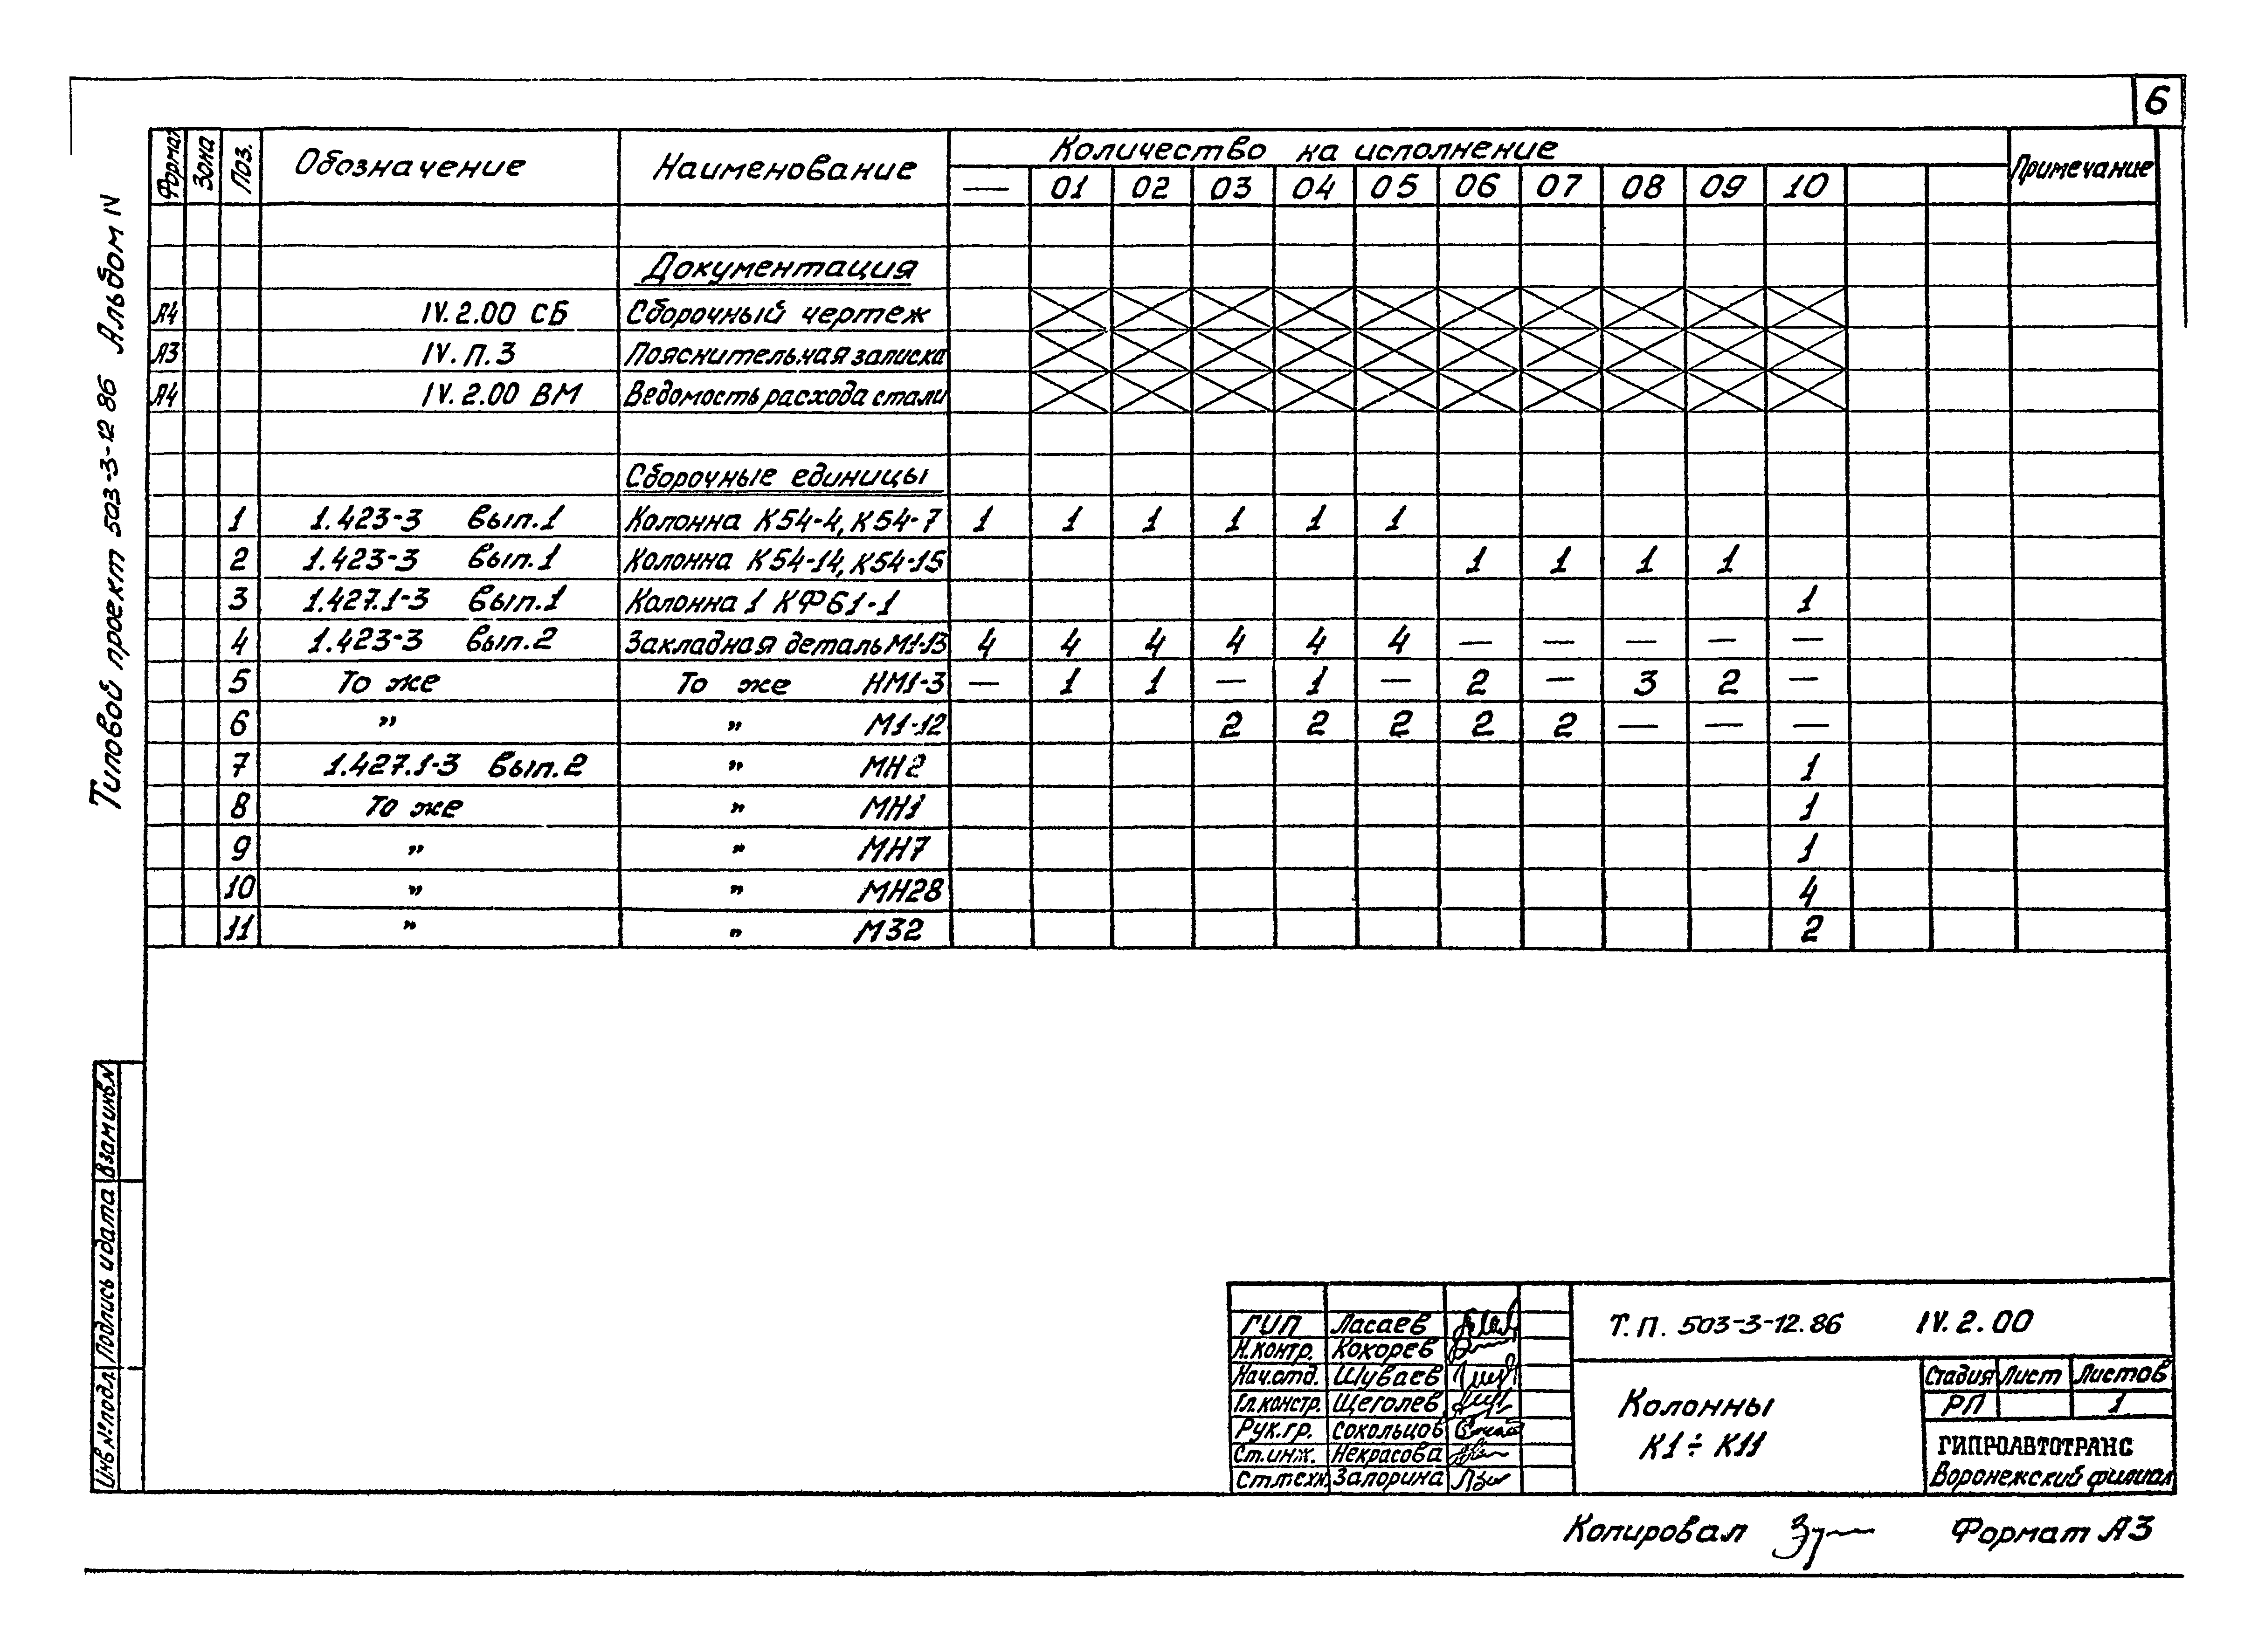 6
Типовой проект 503-3-12 86 Альбом IV
Формат Зона Поз. Обозначение Наименование Количество на исполнение Примечание
— 01 02 03 04 05 06 07 08 09 10
Документация
А4 IV.2.00 СБ Сборочный чертеж
А3 IV.П.3 Пояснительная записка
А4 IV.2.00 ВМ Ведомость расхода стали
Сборочные единицы
1 1.423-3 вып.1 Колонна К54-4, К54-7 1 1 1 1 1 1
2 1.423-3 вып.1 Колонна К54-14, К54-15 1 1 1 1
3 1.427.1-3 вып.1 Колонна 1 КФ61-1 1
4 1.423-3 вып.2 Закладная деталь М1-13 4 4 4 4 4 4 — — — — —
5 То же То же НМ1-3 — 1 1 — 1 — 2 — 3 2 —
6 " " М1-12 2 2 2 2 2 — — —
7 1.427.1-3 вып.2 " МН2 1
8 То же " МН1 1
9 " " МН7 1
10 " " МН28 4
11 " " М32 2
Инв.№подл. Подпись и дата Взам инв.№
ГИП Ласаев
Н.контр. Кокорев
Нач.отд. Шуваев
Гл.констр. Щеголев
Рук.гр. Сокольцов
Ст.инж. Некрасова
Ст.техн. Запорина
Т.П. 503-3-12.86 IV.2.00
Колонны
К1÷К11
Стадия Лист Листов
РП 1
ГИПРОАВТОТРАНС
Воронежский филиал
Копировал Формат А3